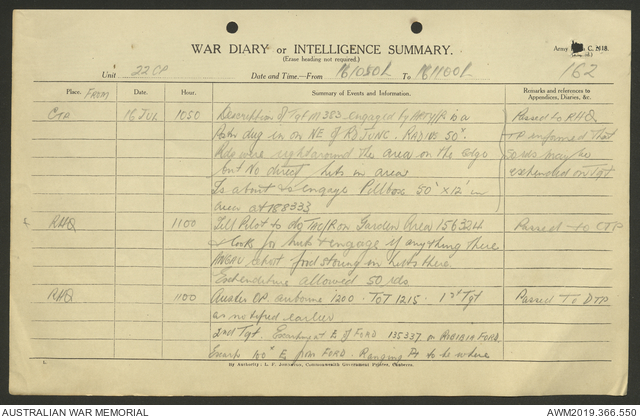 WAR DIARY or INTELLIGENCE SUMMARY.
(Erase heading not required.)
Army C. 2118.
Unit 22 CP Date and Time—From 161050L To 161100L 162
Place. From Date. Hour. Summary of Events and Information. Remarks and references to Appendices, Diaries, &c.
CTP 16 JUL 1050 Description of Tgt M383 engaged by Arty/R is a Passed to RHQ
Posn dug in on NE of Rd Junc. Radius 50ˣ. informed that
Rds were right around the area on the edge 50 rds may be
but no direct hits in area expended on Tgt
Is about to engage Pillbox 50' x 12' in
area at 188333
RHQ 1100 Tell Pilot to do TAC/R on Garden Area 156324 Passed to CTP
& look for huts & engage if anything there
shot food storing in huts there
Expenditure allowed 50 rds
RHQ 1100 Auster CP airborne 1200. TOT 1215. 1st Tgt Passed to DTP
as notified earlier
2nd Tgt. Escarpment E of FORD 135337 on FORD.
Escarp 100ˣ E from FORD. Ranging Pt to be where
L.
By Authority: L. F. Johnston, Commonwealth Government Printer, Canberra.
AUSTRALIAN WAR MEMORIAL AWM2019.366.550